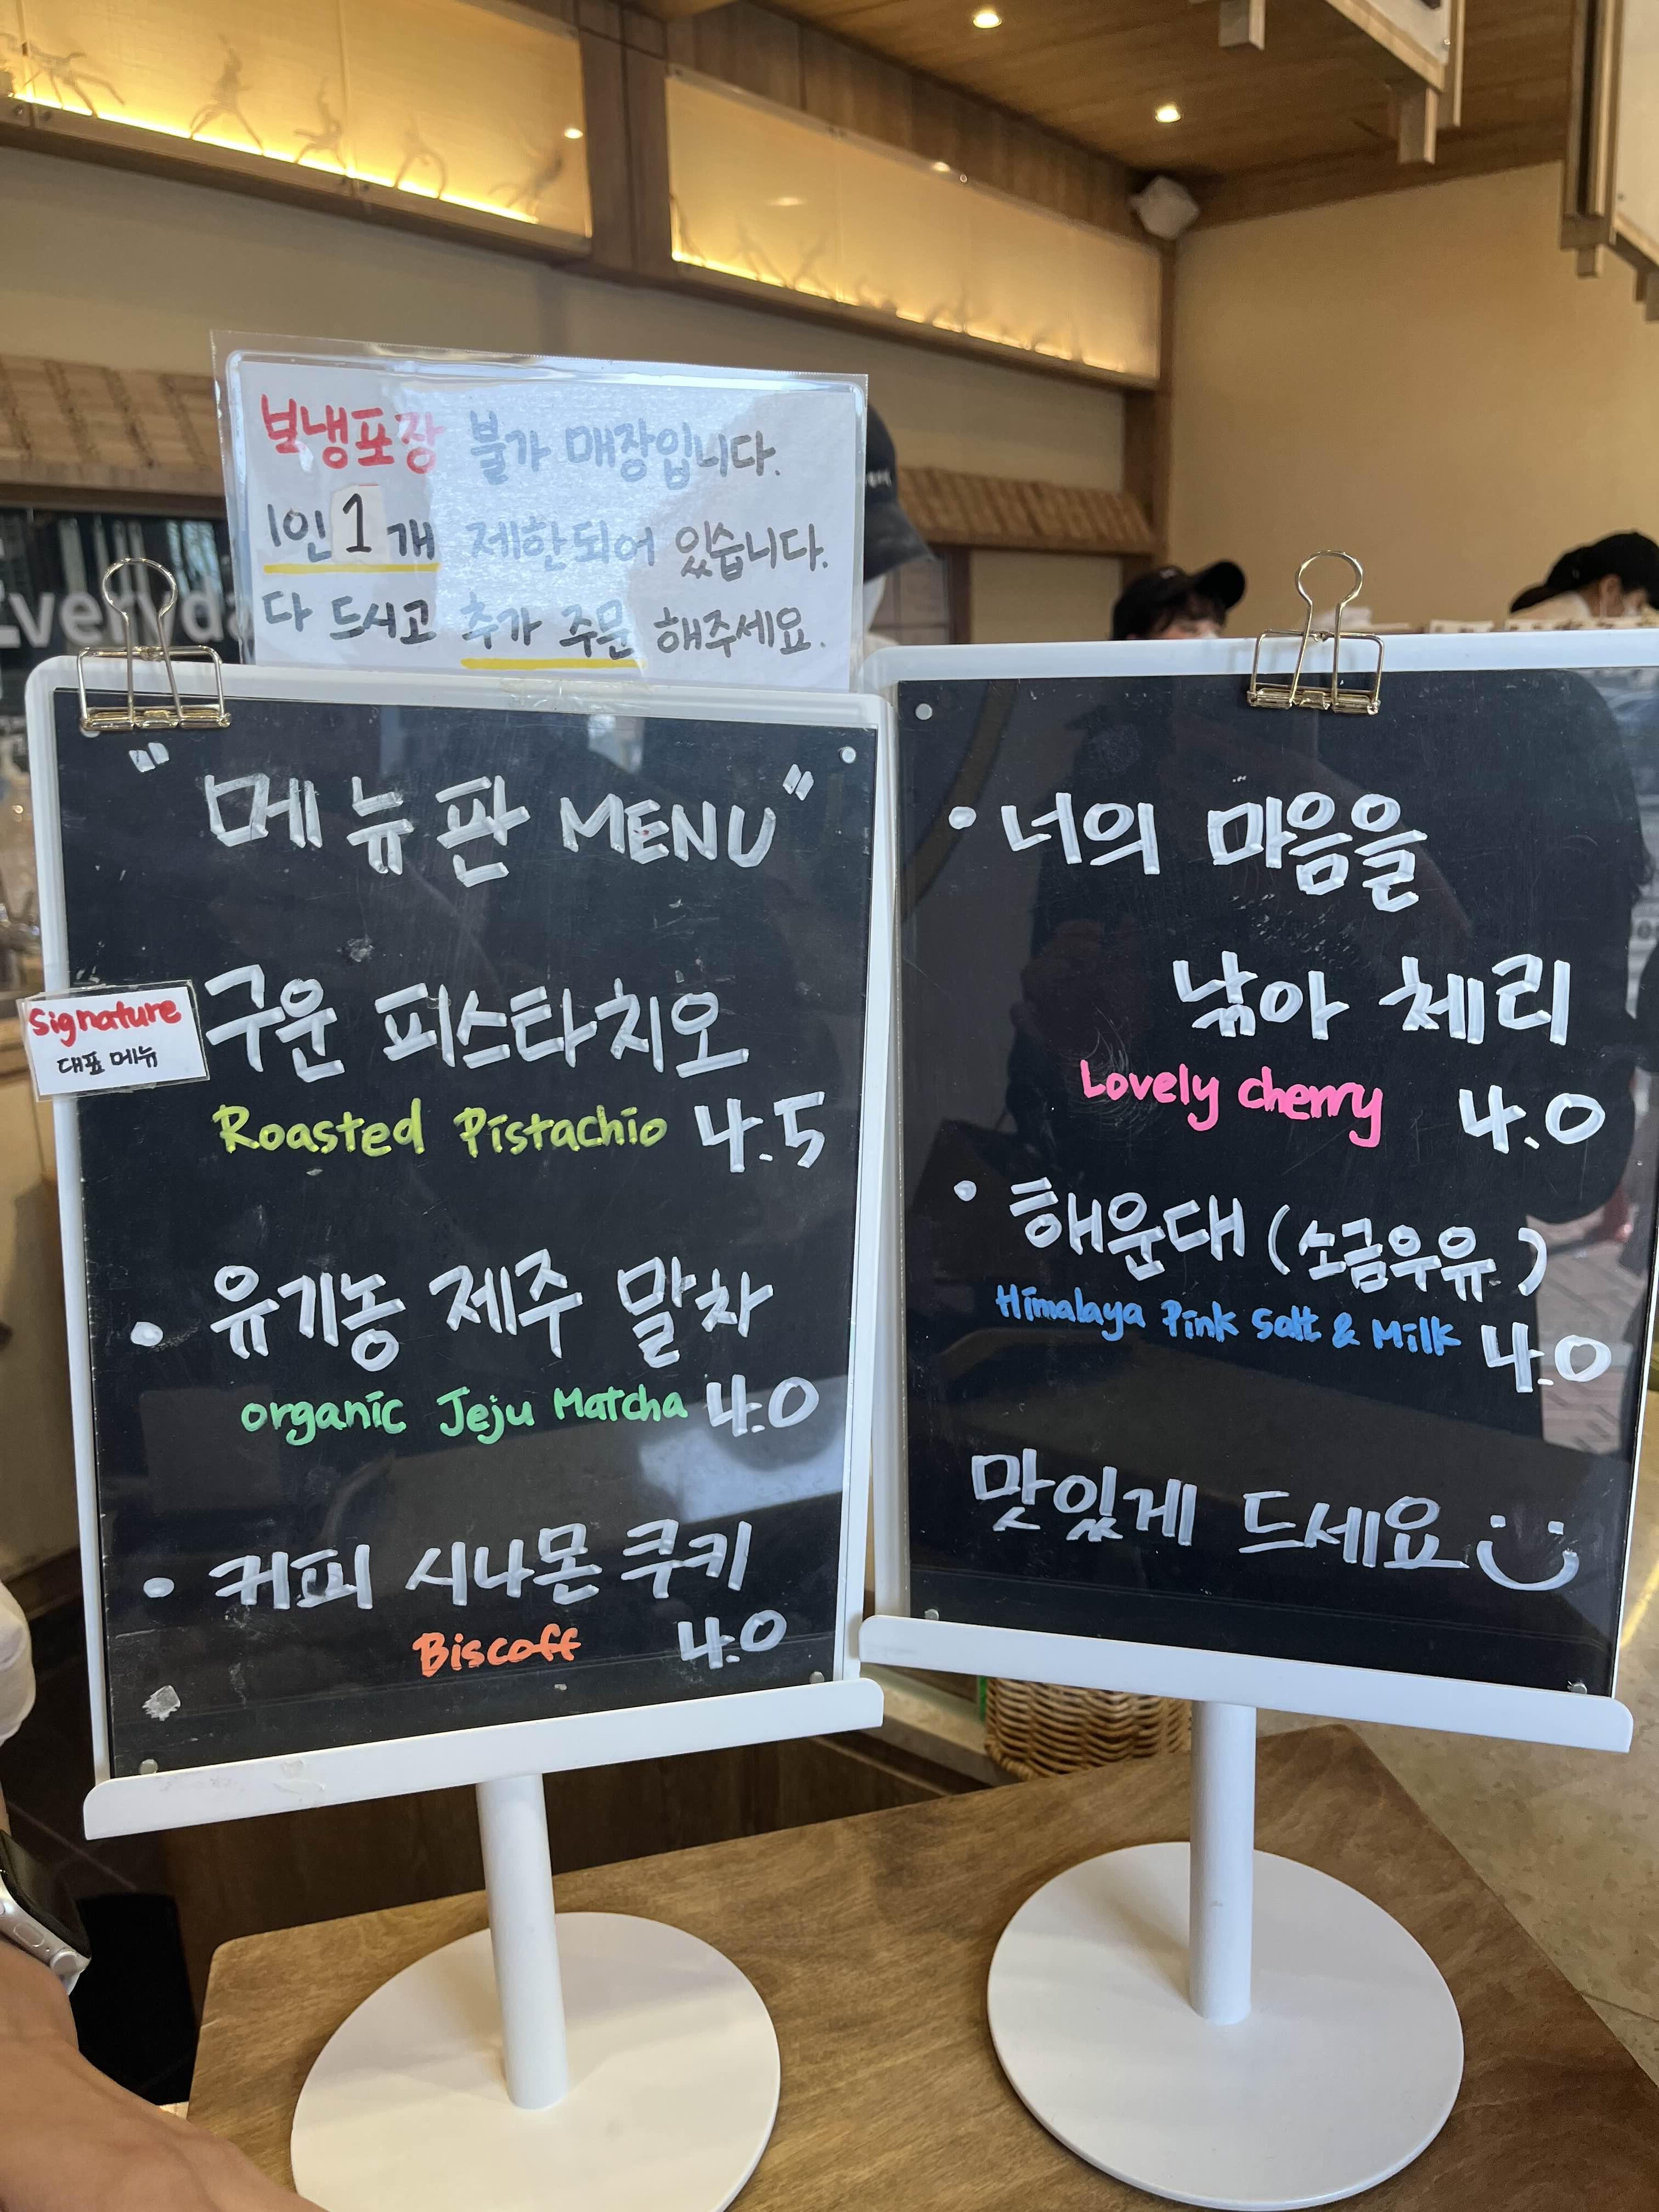 보냉포장 불가 매장입니다.
1인 1개 제한되어 있습니다.
다 드시고 추가 주문 해주세요.
Everyda
"메뉴판 MENU"
Signature
대표 메뉴
구운 피스타치오
Roasted Pistachio 4.5
• 유기농 제주 말차
organic Jeju Matcha 4.0
• 커피 시나몬 쿠키
Biscoff 4.0
• 너의 마음을
낚아 체리
Lovely cherry 4.0
• 해운대 (소금우유)
Himalaya Pink Salt & Milk 4.0
맛있게 드세요